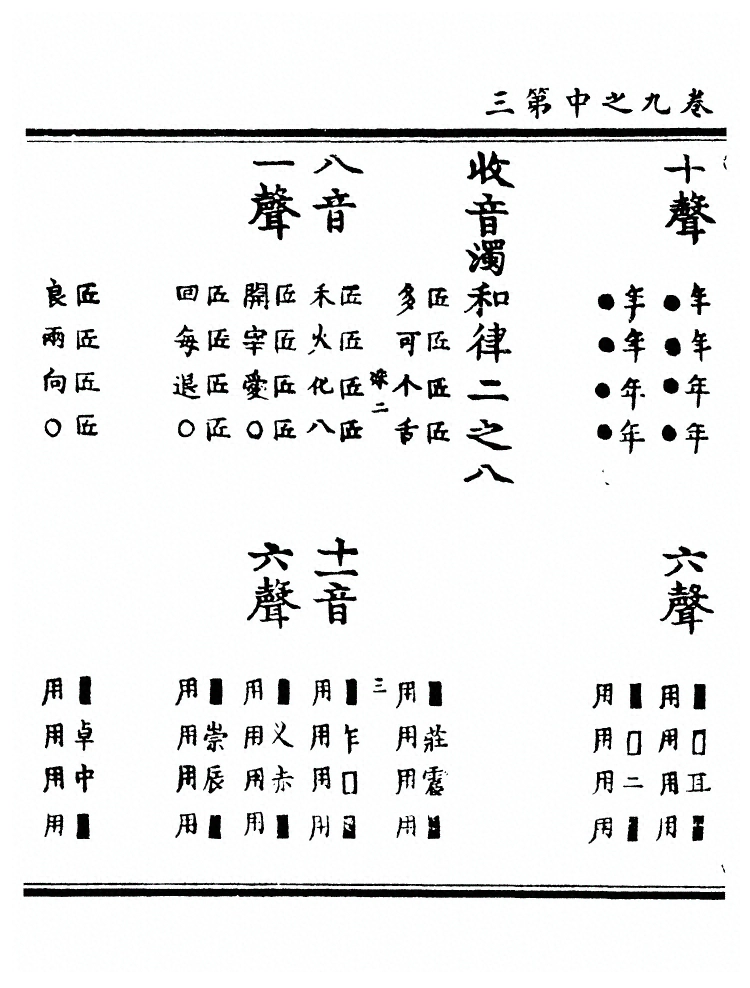 卷九之中第三
十聲
年年年年
●●●●
年年年年
●●●●
收音濁和律二之八
匠匠匠匠
多可个舌
二
八音
一聲
匠匠匠匠
禾火化八
匠匠匠匠
開宰愛○
匠匠匠匠
回每退○
匠匠匠匠
良兩向○
六聲
■□耳■
用用用用
■□二■
用用用用
■莊震■
用用用用
三
十一音
六聲
■乍□■
用用用用
■叉赤■
用用用用
■崇辰■
用用用用
■卓中■
用用用用